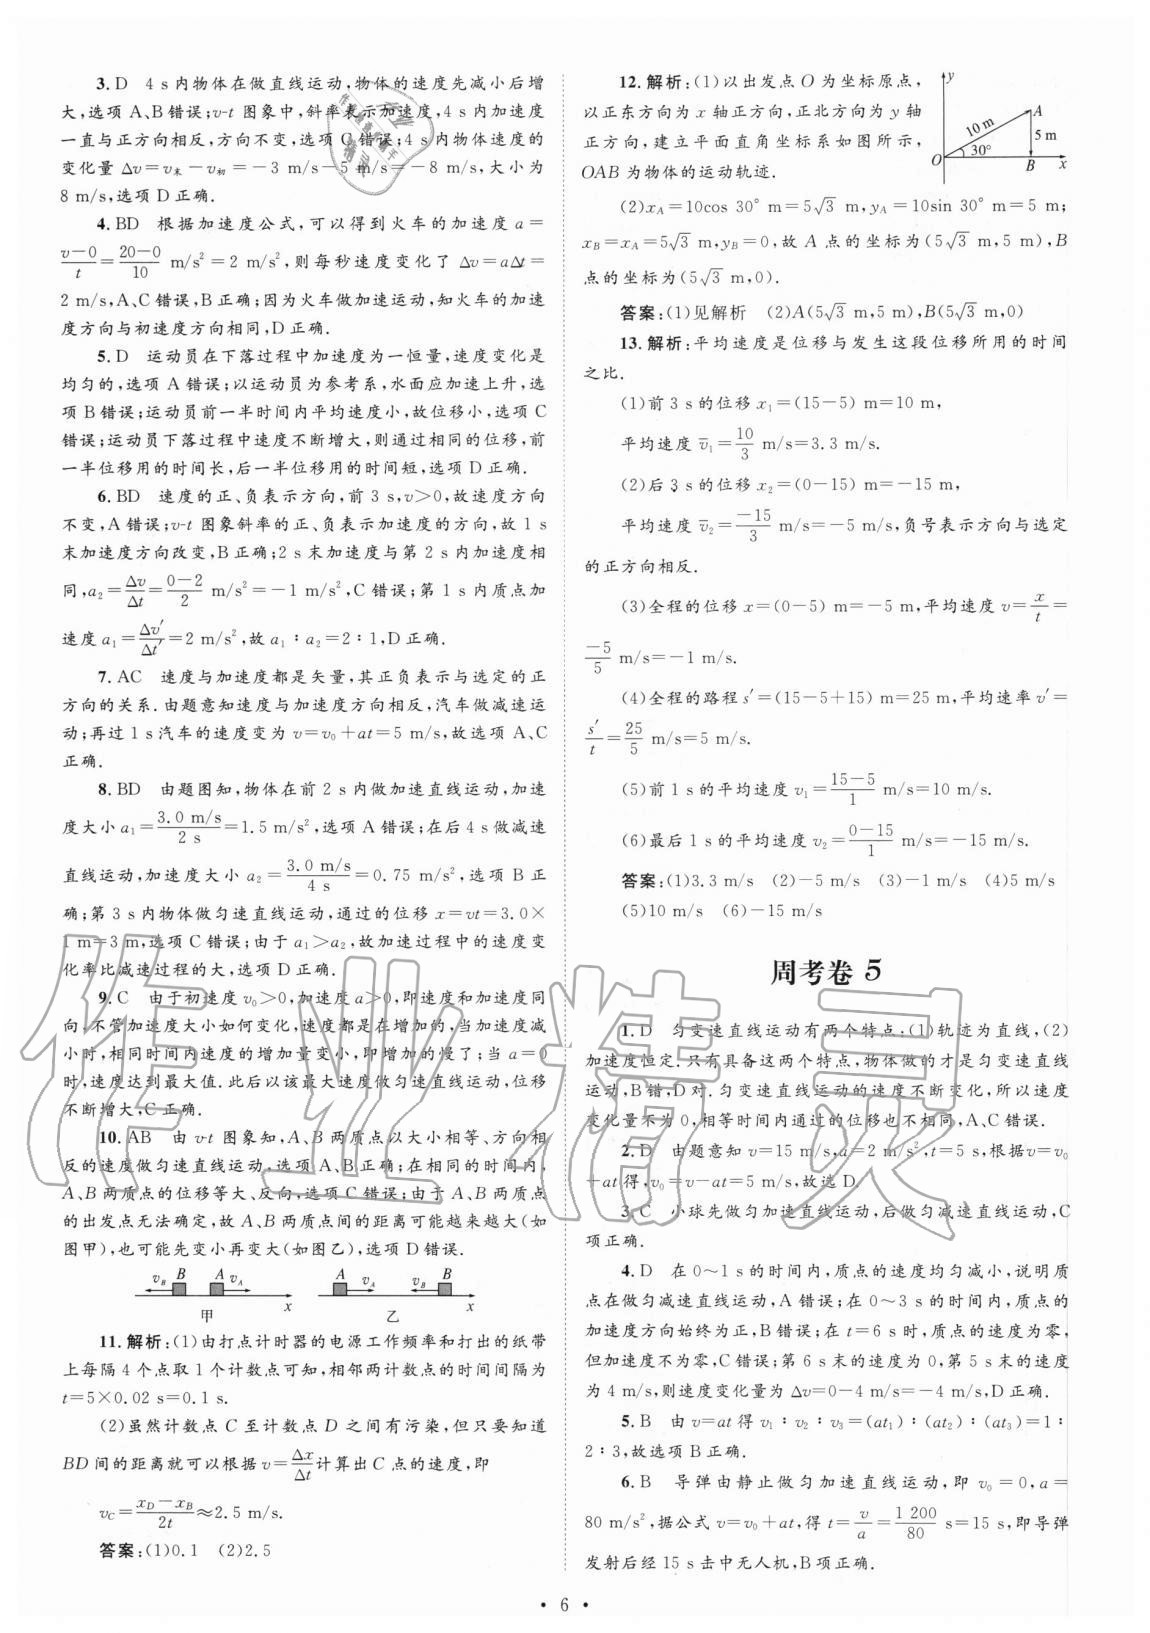 3. D　4 s内物体在做直线运动,物体的速度先减小后增
大,选项 A、B错误;v-t 图象中,斜率表示加速度,4 s内加速度
一直与正方向相反,方向不变,选项 C 错误;4 s内物体速度的
变化量 Δv=v末－v初=－3 m/s－5 m/s=－8 m/s,大小为
8 m/s,选项 D 正确.
4. BD　根据加速度公式,可以得到火车的加速度 a=
(v－0)/t=(20－0)/10 m/s²=2 m/s²,则每秒速度变化了 Δv=aΔt=
2 m/s,A、C 错误,B 正确;因为火车做加速运动,知火车的加速
度方向与初速度方向相同,D 正确.
5. D　运动员在下落过程中加速度为一恒量,速度变化是
均匀的,选项 A 错误;以运动员为参考系,水面应加速上升,选
项 B 错误;运动员前一半时间内平均速度小,故位移小,选项 C
错误;运动员下落过程中速度不断增大,则通过相同的位移,前
一半位移用的时间长,后一半位移用的时间短,选项 D 正确.
6. BD　速度的正、负表示方向,前 3 s,v>0,故速度方向
不变,A 错误;v-t 图象斜率的正、负表示加速度的方向,故 1 s
末加速度方向改变,B 正确;2 s末加速度与第 2 s内加速度相
同,a₂=Δv/Δt=(0－2)/2 m/s²=－1 m/s²,C 错误;第 1 s 内质点加
速度 a₁=Δv′/Δt′=2 m/s²,故 a₁∶a₂=2∶1,D 正确.
7. AC　速度与加速度都是矢量,其正负表示与选定的正
方向的关系.由题意知速度与加速度方向相反,汽车做减速运
动;再过 1 s 汽车的速度变为 v=v₀+at=5 m/s,故选项 A、C
正确.
8. BD　由题图知,物体在前 2 s内做加速直线运动,加速
度大小 a₁=(3.0 m/s)/(2 s)=1.5 m/s²,选项 A 错误;在后 4 s做减速
直线运动,加速度大小 a₂=(3.0 m/s)/(4 s)=0.75 m/s²,选项 B 正
确;第 3 s内物体做匀速直线运动,通过的位移 x=vt=3.0×
1 m=3 m,选项 C 错误;由于 a₁>a₂,故加速过程中的速度变
化率比减速过程的大,选项 D 正确.
9. C　由于初速度 v₀>0,加速度 a>0,即速度和加速度同
向,不管加速度大小如何变化,速度都是在增加的,当加速度减
小时,相同时间内速度的增加量变小,即增加的慢了;当 a=0
时,速度达到最大值.此后以该最大速度做匀速直线运动,位移
不断增大,C 正确.
10. AB　由 v-t 图象知,A、B 两质点以大小相等、方向相
反的速度做匀速直线运动,选项 A、B 正确;在相同的时间内,
A、B 两质点的位移等大、反向,选项 C 错误;由于 A、B 两质点
的出发点无法确定,故 A、B 两质点间的距离可能越来越大(如
图甲),也可能先变小再变大(如图乙),选项 D 错误.
vB B A vA x
甲
A vA vB B x
乙
11. 解析:(1)由打点计时器的电源工作频率和打出的纸带
上每隔 4 个点取 1 个计数点可知,相邻两计数点的时间间隔为
t=5×0.02 s=0.1 s.
(2)虽然计数点 C 至计数点 D 之间有污染,但只要知道
BD 间的距离就可以根据 v=Δx/Δt计算出 C 点的速度,即
vC=(xD－xB)/2t≈2.5 m/s.
答案:(1)0.1　(2)2.5
12. 解析:(1)以出发点 O 为坐标原点,
以正东方向为 x 轴正方向,正北方向为 y 轴
正方向,建立平面直角坐标系如图所示,
OAB 为物体的运动轨迹.
y
A
10 m
5 m
30°
O
B
x
(2)xA=10cos 30° m=5√3 m,yA=10sin 30° m=5 m;
xB=xA=5√3 m,yB=0,故 A 点的坐标为(5√3 m,5 m),B
点的坐标为(5√3 m,0).
答案:(1)见解析　(2)A(5√3 m,5 m),B(5√3 m,0)
13. 解析:平均速度是位移与发生这段位移所用的时间
之比.
(1)前 3 s 的位移 x₁=(15－5) m=10 m,
平均速度 v̄₁=10/3 m/s=3.3 m/s.
(2)后 3 s 的位移 x₂=(0－15) m=－15 m,
平均速度 v̄₂=－15/3 m/s=－5 m/s,负号表示方向与选定
的正方向相反.
(3)全程的位移 x=(0－5) m=－5 m,平均速度 v=x/t=
－5/5 m/s=－1 m/s.
(4)全程的路程 s′=(15－5+15) m=25 m,平均速率 v′=
s′/t=25/5 m/s=5 m/s.
(5)前 1 s 的平均速度 v₁=(15－5)/1 m/s=10 m/s.
(6)最后 1 s 的平均速度 v₂=(0－15)/1 m/s=－15 m/s.
答案:(1)3.3 m/s　(2)－5 m/s　(3)－1 m/s　(4)5 m/s
(5)10 m/s　(6)－15 m/s
周考卷 5
1. D　匀变速直线运动有两个特点:(1)轨迹为直线,(2)
加速度恒定.只有具备这两个特点,物体做的才是匀变速直线
运动,B 错,D 对.匀变速直线运动的速度不断变化,所以速度
变化量不为 0,相等时间内通过的位移也不相同,A、C 错误.
2. D　由题意知 v=15 m/s,a=2 m/s²,t=5 s,根据v=v₀
+at得,v₀=v－at=5 m/s,故选 D.
3. C　小球先做匀加速直线运动,后做匀减速直线运动,C
项正确.
4. D　在 0～1 s 的时间内,质点的速度均匀减小,说明质
点在做匀减速直线运动,A 错误;在 0～3 s 的时间内,质点的
速度方向始终为正,B 错误;在 t=6 s 时,质点的速度为零,
但加速度不为零,C 错误;第 6 s 末的速度为 0,第 5 s 末的速度
为 4 m/s,则速度变化量为 Δv=0－4 m/s=－4 m/s,D 正确.
5. B　由 v=at 得 v₁∶v₂∶v₃=(at₁)∶(at₂)∶(at₃)=1∶
2∶3,故选项 B 正确.
6. B　导弹由静止做匀加速直线运动,即 v₀=0,a=
80 m/s²,据公式 v=v₀+at,得 t=v/a=1 200/80 s=15 s,即导弹
发射后经 15 s 击中无人机,B 项正确.
• 6 •
作业精灵